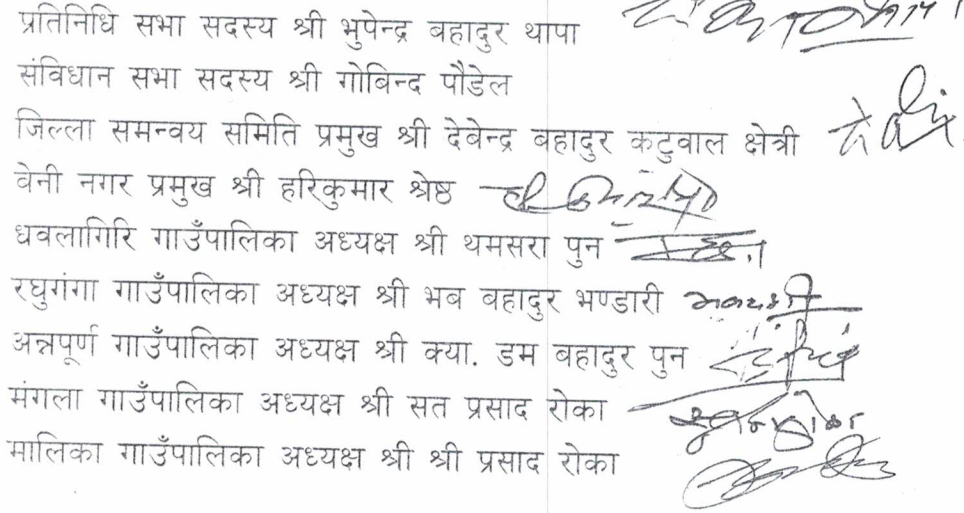 प्रतिनिधि सभा सदस्य श्री भुपेन्द्र बहादुर थापा
संविधान सभा सदस्य श्री गोबिन्द पौडेल
जिल्ला समन्वय समिति प्रमुख श्री देबेन्द्र बहादुर कटुवाल क्षेत्री
वेनी नगर प्रमुख श्री हरिकुमार श्रेष्ठ
धवलागिरि गाउँपालिका अध्यक्ष श्री थमसरा पुन
रघुगंगा गाउँपालिका अध्यक्ष श्री भब बहादुर भण्डारी
अन्नपूर्ण गाउँपालिका अध्यक्ष श्री क्या. डम बहादुर पुन
मंगला गाउँपालिका अध्यक्ष श्री सत प्रसाद रोका
मालिका गाउँपालिका अध्यक्ष श्री श्री प्रसाद रोका